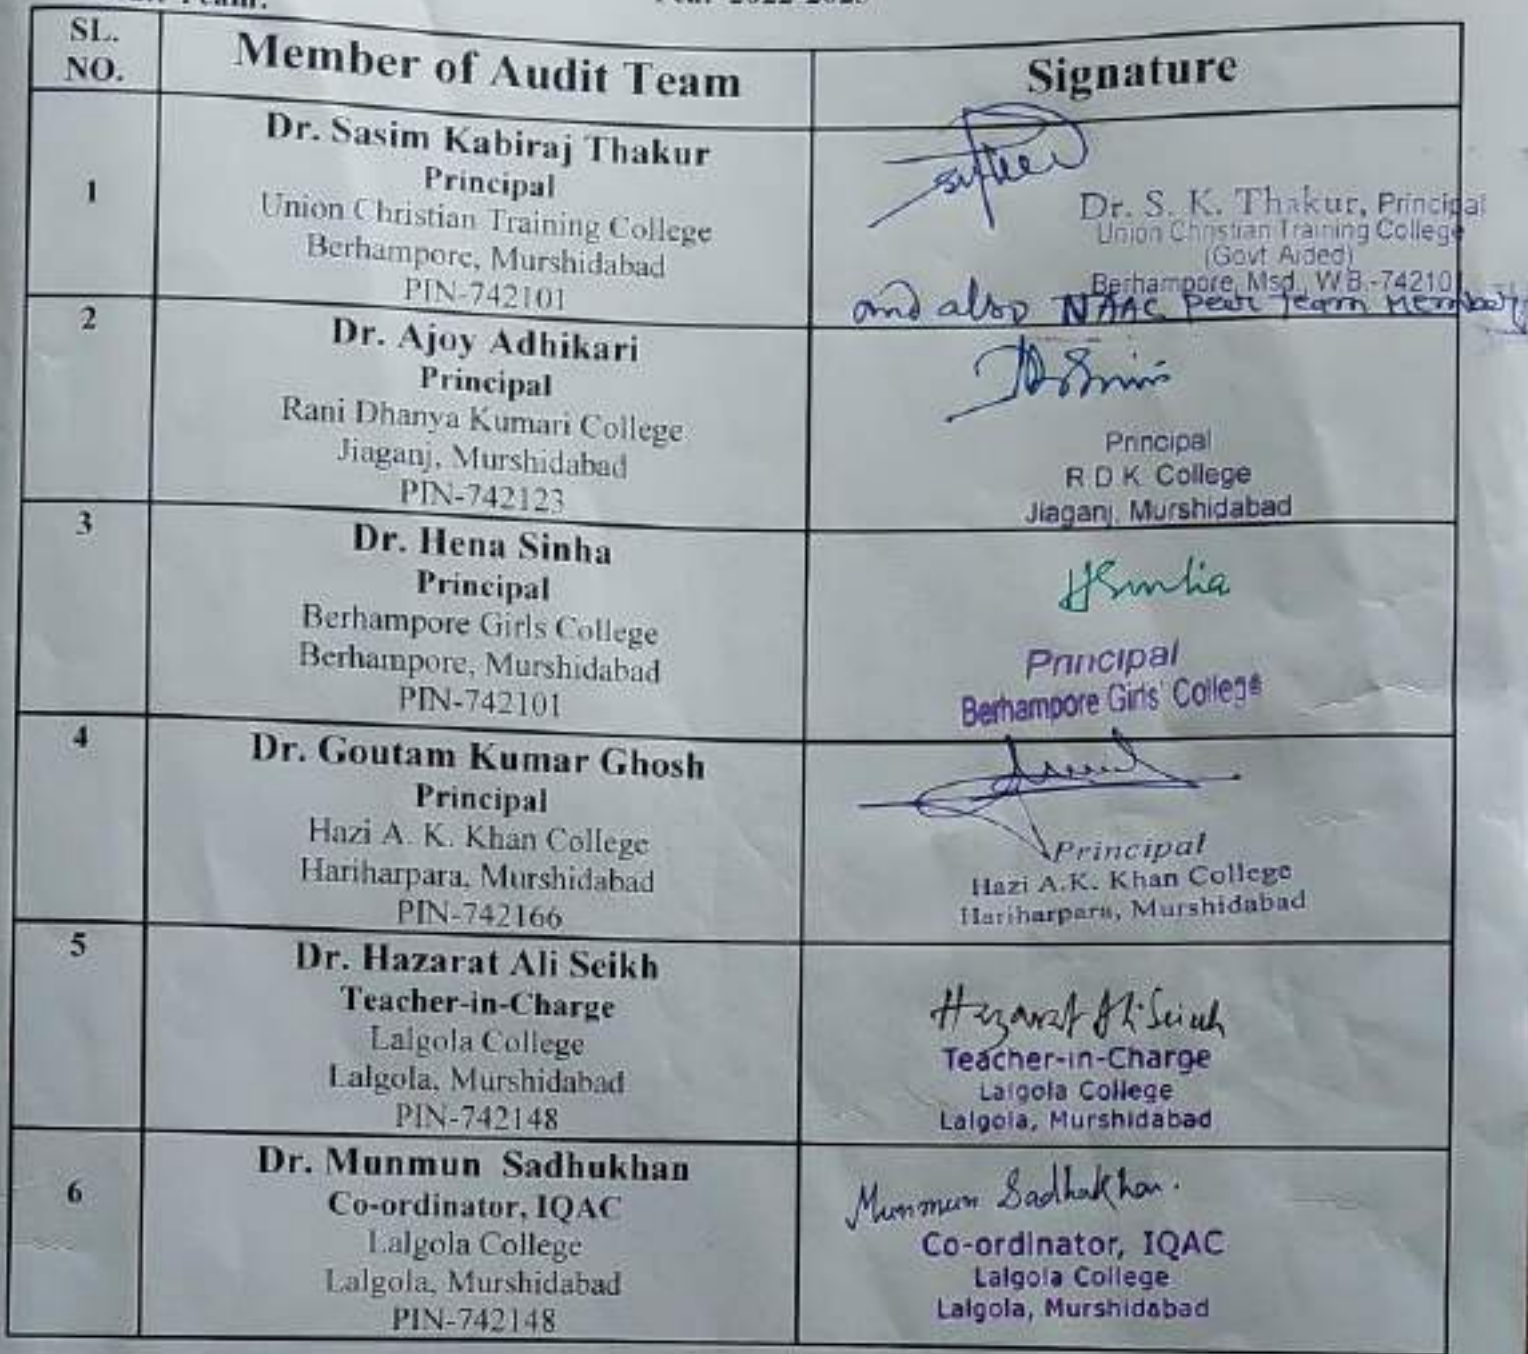 SL. NO.
Member of Audit Team
Signature
1
Dr. Sasim Kabiraj Thakur
Principal
Union Christian Training College
Berhampore, Murshidabad
PIN-742101
Dr. S. K. Thakur, Principal
Union Christian Training College
(Govt Aided)
Berhampore, Msd., W.B.-742101
and also NAAC Peer Team Member
2
Dr. Ajoy Adhikari
Principal
Rani Dhanya Kumari College
Jiaganj, Murshidabad
PIN-742123
Principal
R D K College
Jiaganj, Murshidabad
3
Dr. Hena Sinha
Principal
Berhampore Girls College
Berhampore, Murshidabad
PIN-742101
HSinha
Principal
Berhampore Girls' College
4
Dr. Goutam Kumar Ghosh
Principal
Hazi A. K. Khan College
Hariharpara, Murshidabad
PIN-742166
Principal
Hazi A.K. Khan College
Hariharpara, Murshidabad
5
Dr. Hazarat Ali Seikh
Teacher-in-Charge
Lalgola College
Lalgola, Murshidabad
PIN-742148
Hazarat Ali Seikh
Teacher-in-Charge
Lalgola College
Lalgola, Murshidabad
6
Dr. Munmun Sadhukhan
Co-ordinator, IQAC
Lalgola College
Lalgola, Murshidabad
PIN-742148
Munmun Sadhukhan.
Co-ordinator, IQAC
Lalgola College
Lalgola, Murshidabad